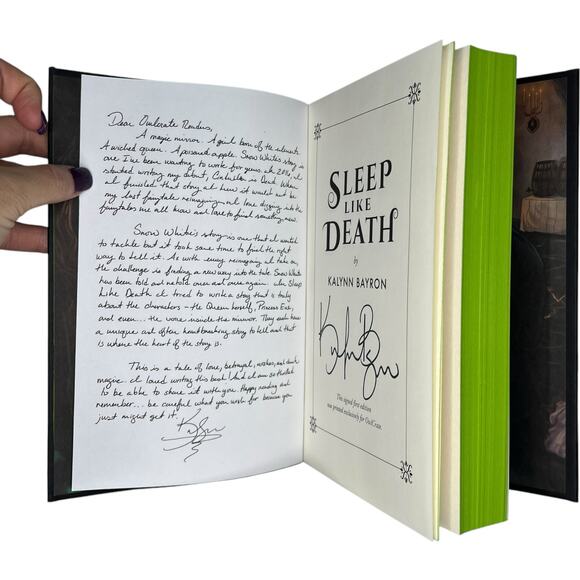 Dear Owlcrate Readers,
A magic mirror. A girl born of the elements.
A wicked queen. A poisoned apple. Snow White's story is
one I've been wanting to work for years. In 2016, I
started writing my debut, Cinderella is Dead. When
I finished that story I knew it would not be
my last fairytale reimagining. I love digging into the
fairytales we all know and love to find something new.
Snow White's story is one that I wanted
to tackle but it took some time to find the right
way to tell it. As with every reimagining I take on,
the challenge is finding a new way into the tale. Snow White
has been told and retold over and over again. In Sleep
Like Death I tried to write a story that is truly
about the characters - the Queen herself, Princess Eve,
and even... the voice inside the mirror. They each have
a unique and often heartbreaking story to tell and that
is where the heart of the story is.
This is a tale of love, betrayal, wishes, and dark
magic. I loved writing this book and I am so thrilled
to be able to share it with you. Happy reading and
remember... be careful what you wish for because you
just might get it.
SLEEP
LIKE
DEATH
by
KALYNN BAYRON
This signed first edition
was printed exclusively for OwlCrate.